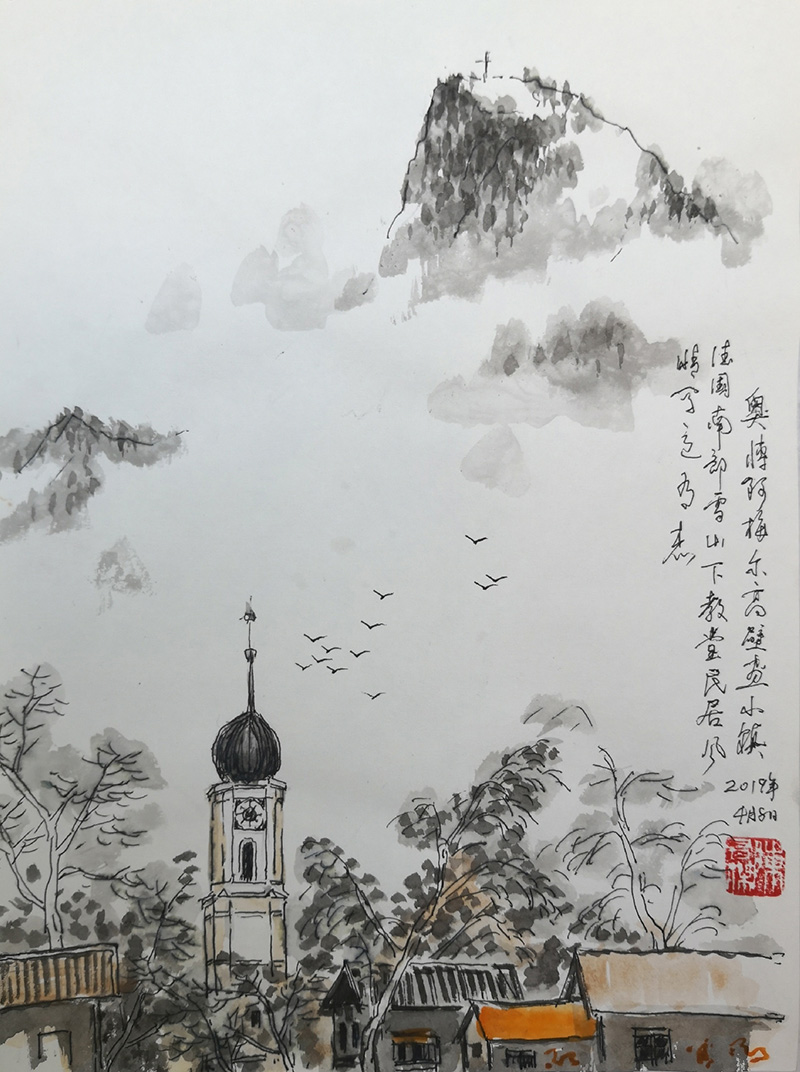 奥博阿梅尔高壁画小镇
德国南部雪山下教堂民居风
情写意为志
2019年
4月8日